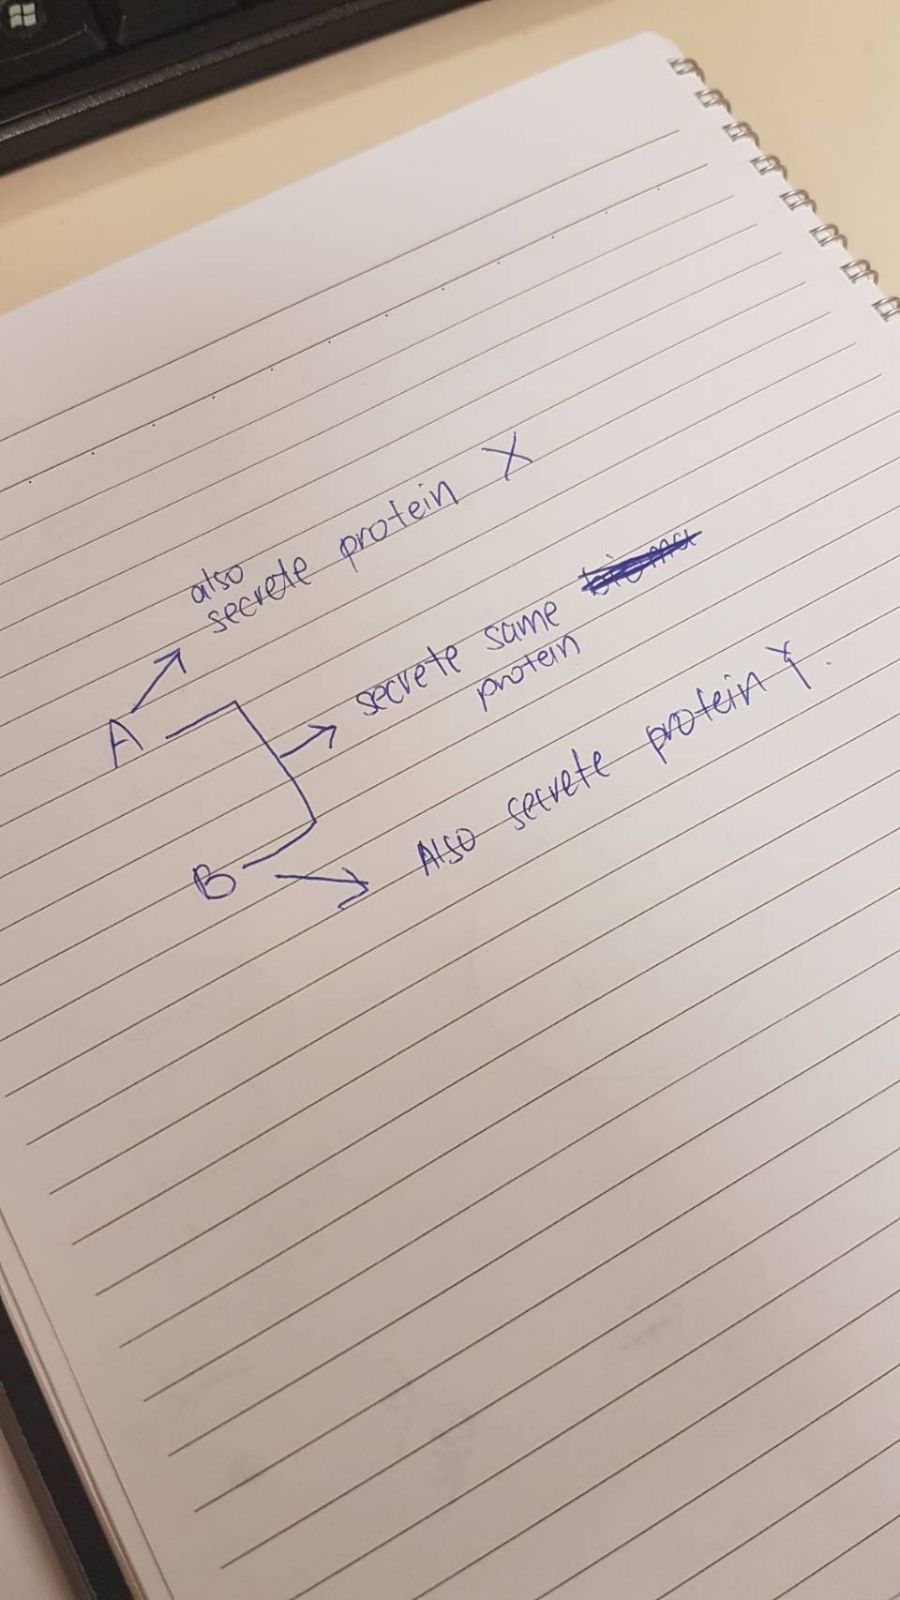 also
secrete protein X
A
secrete same
protein
B
Also secrete protein Y.